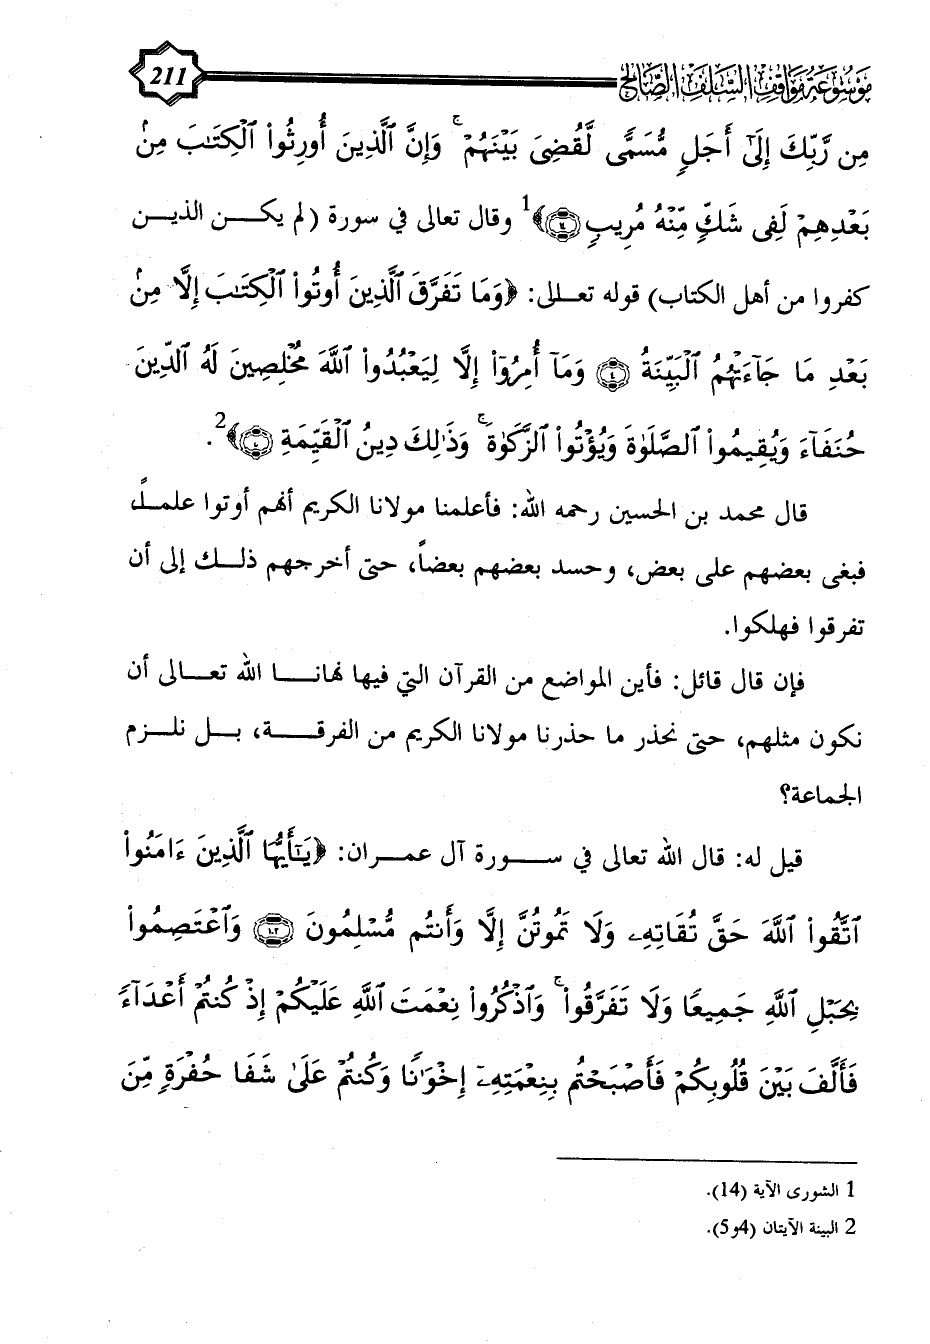 موسوعة مواقف السلف الصالح 211
مِن رَّبِّكَ إِلَىٰٓ أَجَلٍ مُّسَمًّى لَّقُضِىَ بَيْنَهُمْ ۚ وَإِنَّ ٱلَّذِينَ أُورِثُوا۟ ٱلْكِتَـٰبَ مِنۢ
بَعْدِهِمْ لَفِى شَكٍّ مِّنْهُ مُرِيبٍ ﴿١٤﴾1 وقال تعالى في سورة (لم يكن الذين
كفروا من أهل الكتاب) قوله تعالى: ﴿وَمَا تَفَرَّقَ ٱلَّذِينَ أُوتُوا۟ ٱلْكِتَـٰبَ إِلَّا مِنۢ
بَعْدِ مَا جَآءَتْهُمُ ٱلْبَيِّنَةُ ﴿٤﴾ وَمَآ أُمِرُوٓا۟ إِلَّا لِيَعْبُدُوا۟ ٱللَّهَ مُخْلِصِينَ لَهُ ٱلدِّينَ
حُنَفَآءَ وَيُقِيمُوا۟ ٱلصَّلَوٰةَ وَيُؤْتُوا۟ ٱلزَّكَوٰةَ ۚ وَذَٰلِكَ دِينُ ٱلْقَيِّمَةِ ﴿٥﴾2.
قال محمد بن الحسين رحمه الله: فأعلمنا مولانا الكريم أنهم أوتوا علماً
فبغى بعضهم على بعض، وحسد بعضهم بعضاً، حتى أخرجهم ذلك إلى أن
تفرقوا فهلكوا.
فإن قال قائل: فأين المواضع من القرآن التي فيها نهانا الله تعالى أن
نكون مثلهم، حتى نحذر ما حذرنا مولانا الكريم من الفرقة، بل نلزم
الجماعة؟
قيل له: قال الله تعالى في سورة آل عمران: ﴿يَـٰٓأَيُّهَا ٱلَّذِينَ ءَامَنُوا۟
ٱتَّقُوا۟ ٱللَّهَ حَقَّ تُقَاتِهِۦ وَلَا تَمُوتُنَّ إِلَّا وَأَنتُم مُّسْلِمُونَ ﴿١٠٢﴾ وَٱعْتَصِمُوا۟
بِحَبْلِ ٱللَّهِ جَمِيعًا وَلَا تَفَرَّقُوا۟ ۚ وَٱذْكُرُوا۟ نِعْمَتَ ٱللَّهِ عَلَيْكُمْ إِذْ كُنتُمْ أَعْدَآءً
فَأَلَّفَ بَيْنَ قُلُوبِكُمْ فَأَصْبَحْتُم بِنِعْمَتِهِۦٓ إِخْوَٰنًا وَكُنتُمْ عَلَىٰ شَفَا حُفْرَةٍ مِّنَ
1 الشورى الآية (14).
2 البينة الآيتان (4و5).